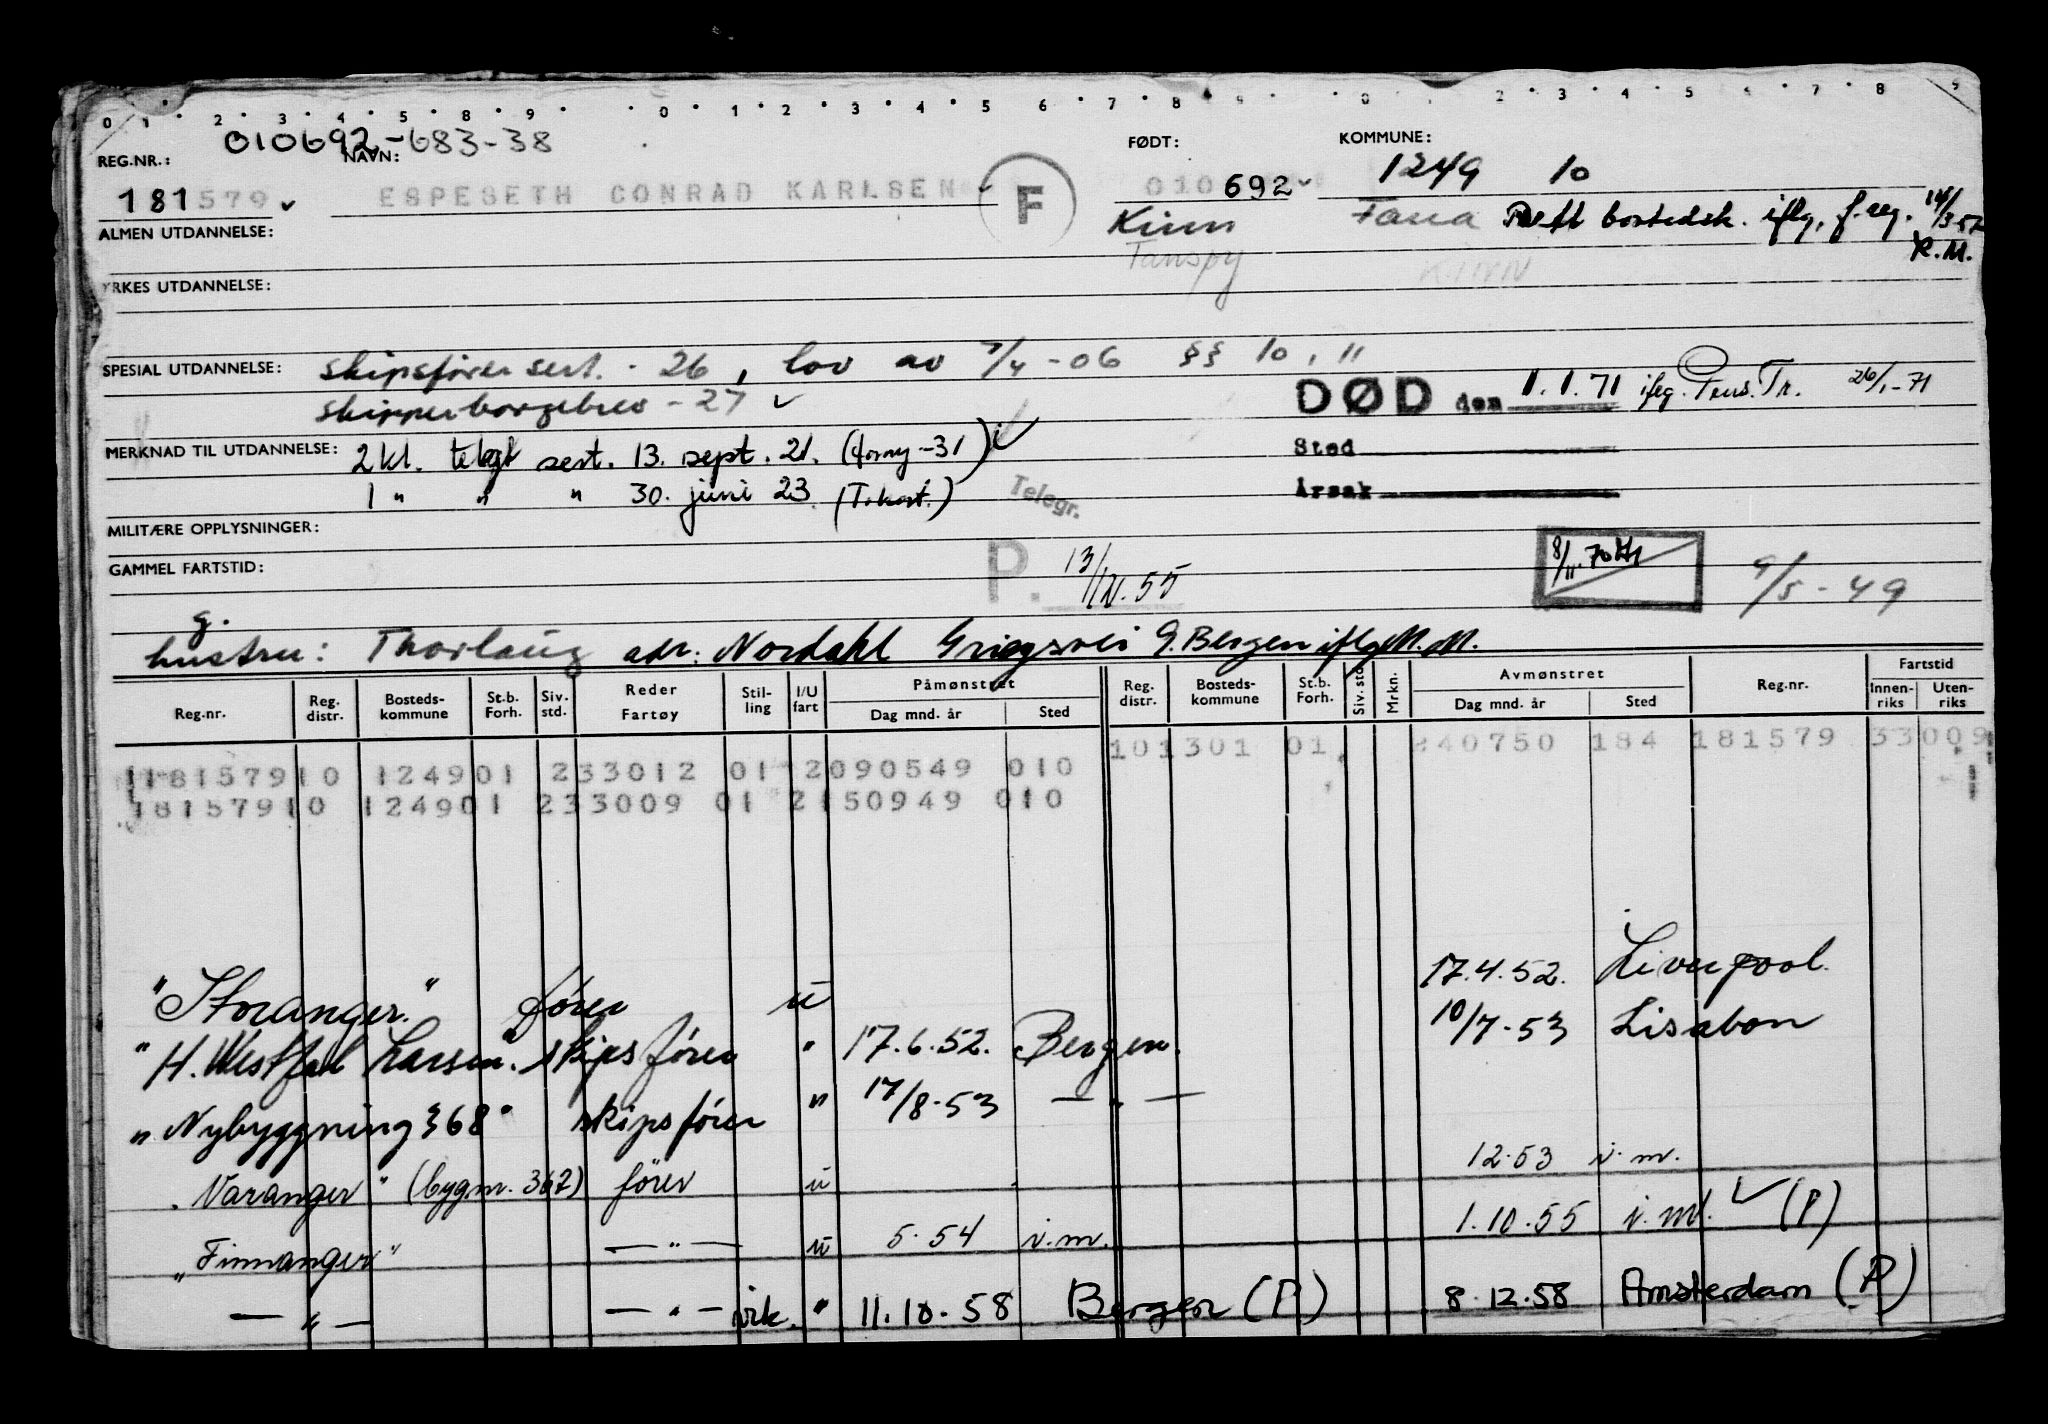 0 1 2 3 4 5 8 9 0 1 2 3 4 5 6 7 8 9 0 2 3 4 5 6 7 8 9
010692-683-38
REG.NR.: NAVN: FØDT: KOMMUNE:
181579 ESPESETH CONRAD KARLSEN F 010692 1249 10
Kinn Fana Rett bostedsk. iflg. f.reg. 14/3.52
R.M.
ALMEN UTDANNELSE:
KINN
YRKES UTDANNELSE:
SPESIAL UTDANNELSE: skipsfører sert. - 26, lov av 7/4 -06 §§ 10, 11
skipperborgebrev - 27
DØD den 1.1.71 iføg. Pens.Tr. 26/1-71
MERKNAD TIL UTDANNELSE: 2 kl. telegr sert. 13. sept. 21. (forny -31)
Sted
1 " " " 30. juni 23 (T.kort.)
Telegr.
Årsak
MILITÆRE OPPLYSNINGER:
GAMMEL FARTSTID:
P. 13/12.55
8/11.70
9/5 - 49
g.
hustru: Thorlaug adr: Nordahl Griegsvei 9. Bergen iflg M.M.
Reg.nr. Reg. distr. Bosteds-kommune St.b. Forh. Siv. std. Reder Fartøy Stil-ling I/U fart Påmønstret Dag mnd. år Sted Reg. distr. Bosteds-kommune St.b. Forh. Siv. std. Mrkn. Avmønstret Dag mnd. år Sted Reg.nr. Fartstid Innen-riks Uten-riks
101301 01 240750 184 181579 33009
18157910 124901 233012 01 2090549 010
18157910 124901 233009 01 2150949 010
"Storanger." fører u 17.4.52. Liverpool.
"H. Westfal Larsen". skipsfører " 17.6.52. Bergen. 10/7-53 Lisabon
"Nybyggning 368" skipsfører " 17/8-53 — " —
"Varanger" (bygnr. 367) fører u 12.53 i.m.
"Finnanger" — " — u 5.54 i.m. 1.10.55 i.m. (P)
— " — — " — virk. " 11.10.58 Bergen (P) 8.12.58 Amsterdam (P)